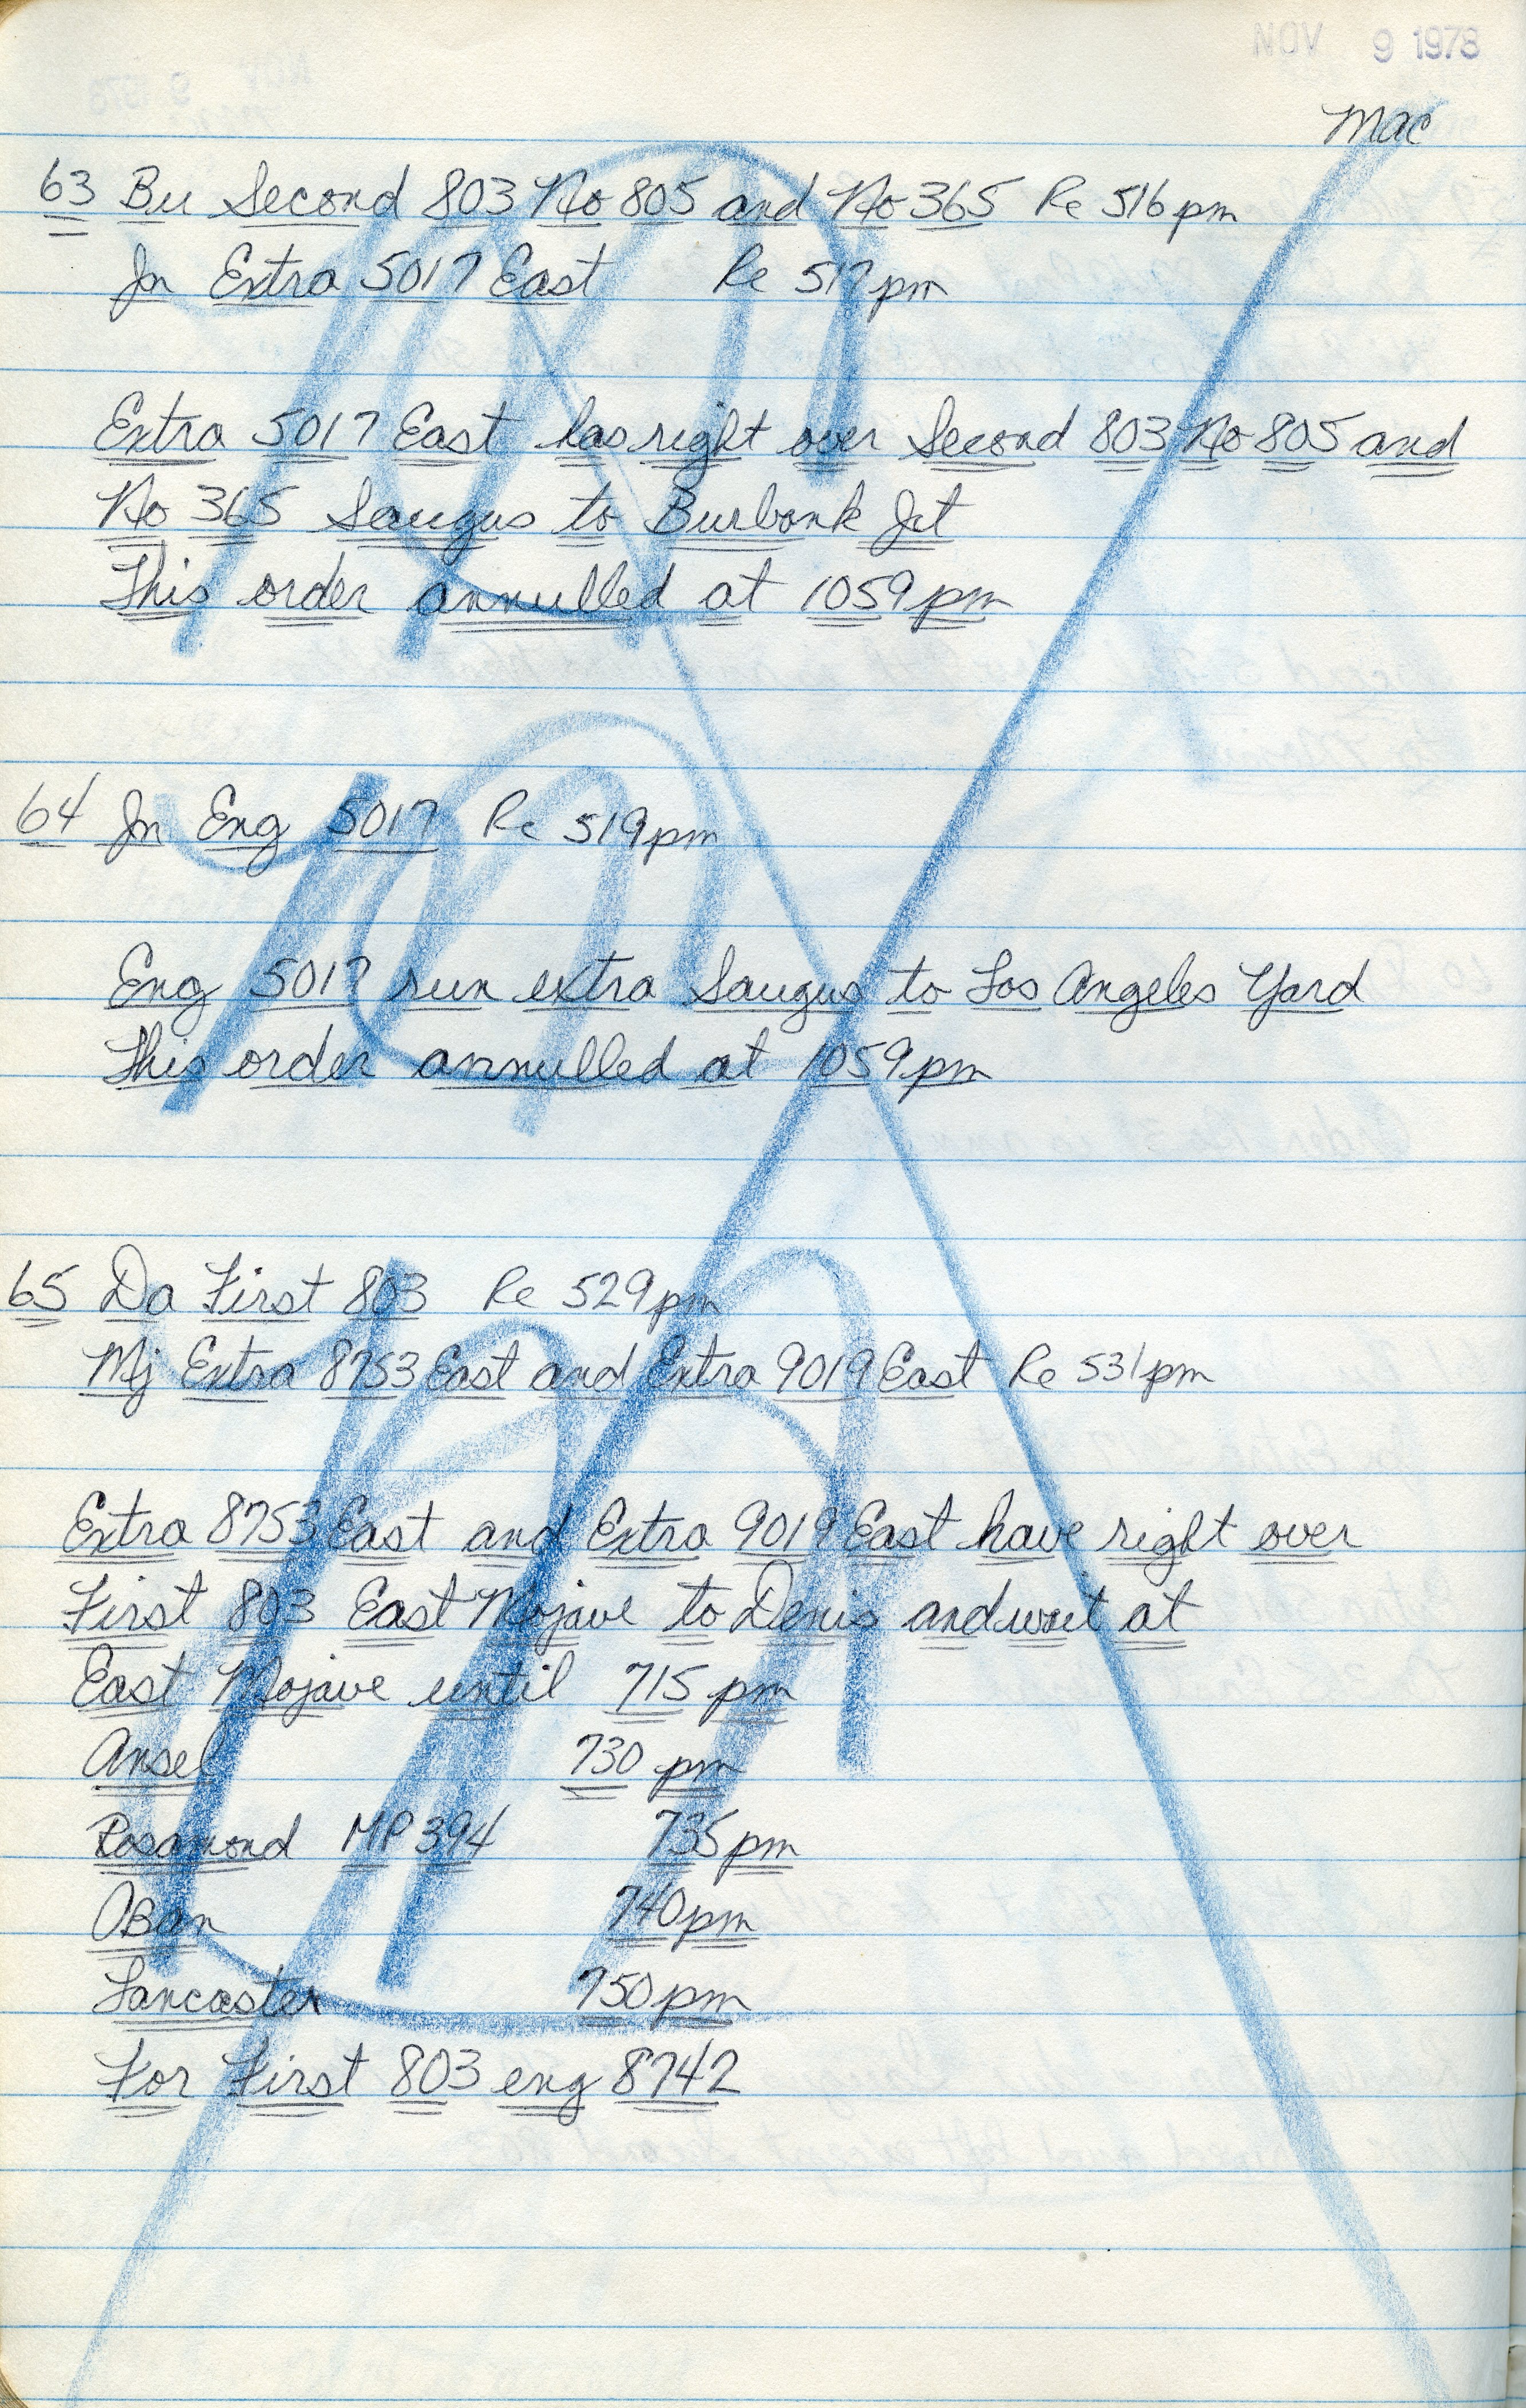 NOV 9 1978
Mac
63 Bu Second 803 No 805 and No 365 Re 516pm
Jn Extra 5017 East Re 517pm
Extra 5017 East has right over Second 803 No 805 and
No 365 Saugus to Burbank Jct
This order annulled at 1059pm
64 Jn Eng 5017 Re 519pm
Eng 5017 run extra Saugus to Los Angeles Yard
This order annulled at 1059pm
65 Da First 803 Re 529pm
Mj Extra 8753 East and Extra 9019 East Re 531pm
Extra 8753 East and Extra 9019 East have right over
First 803 East Mojave to Denis and wait at
East Mojave until 715 pm
Ansel 730 pm
Rosamond MP 394 735pm
Oban 740pm
Lancaster 750pm
For First 803 eng 8742